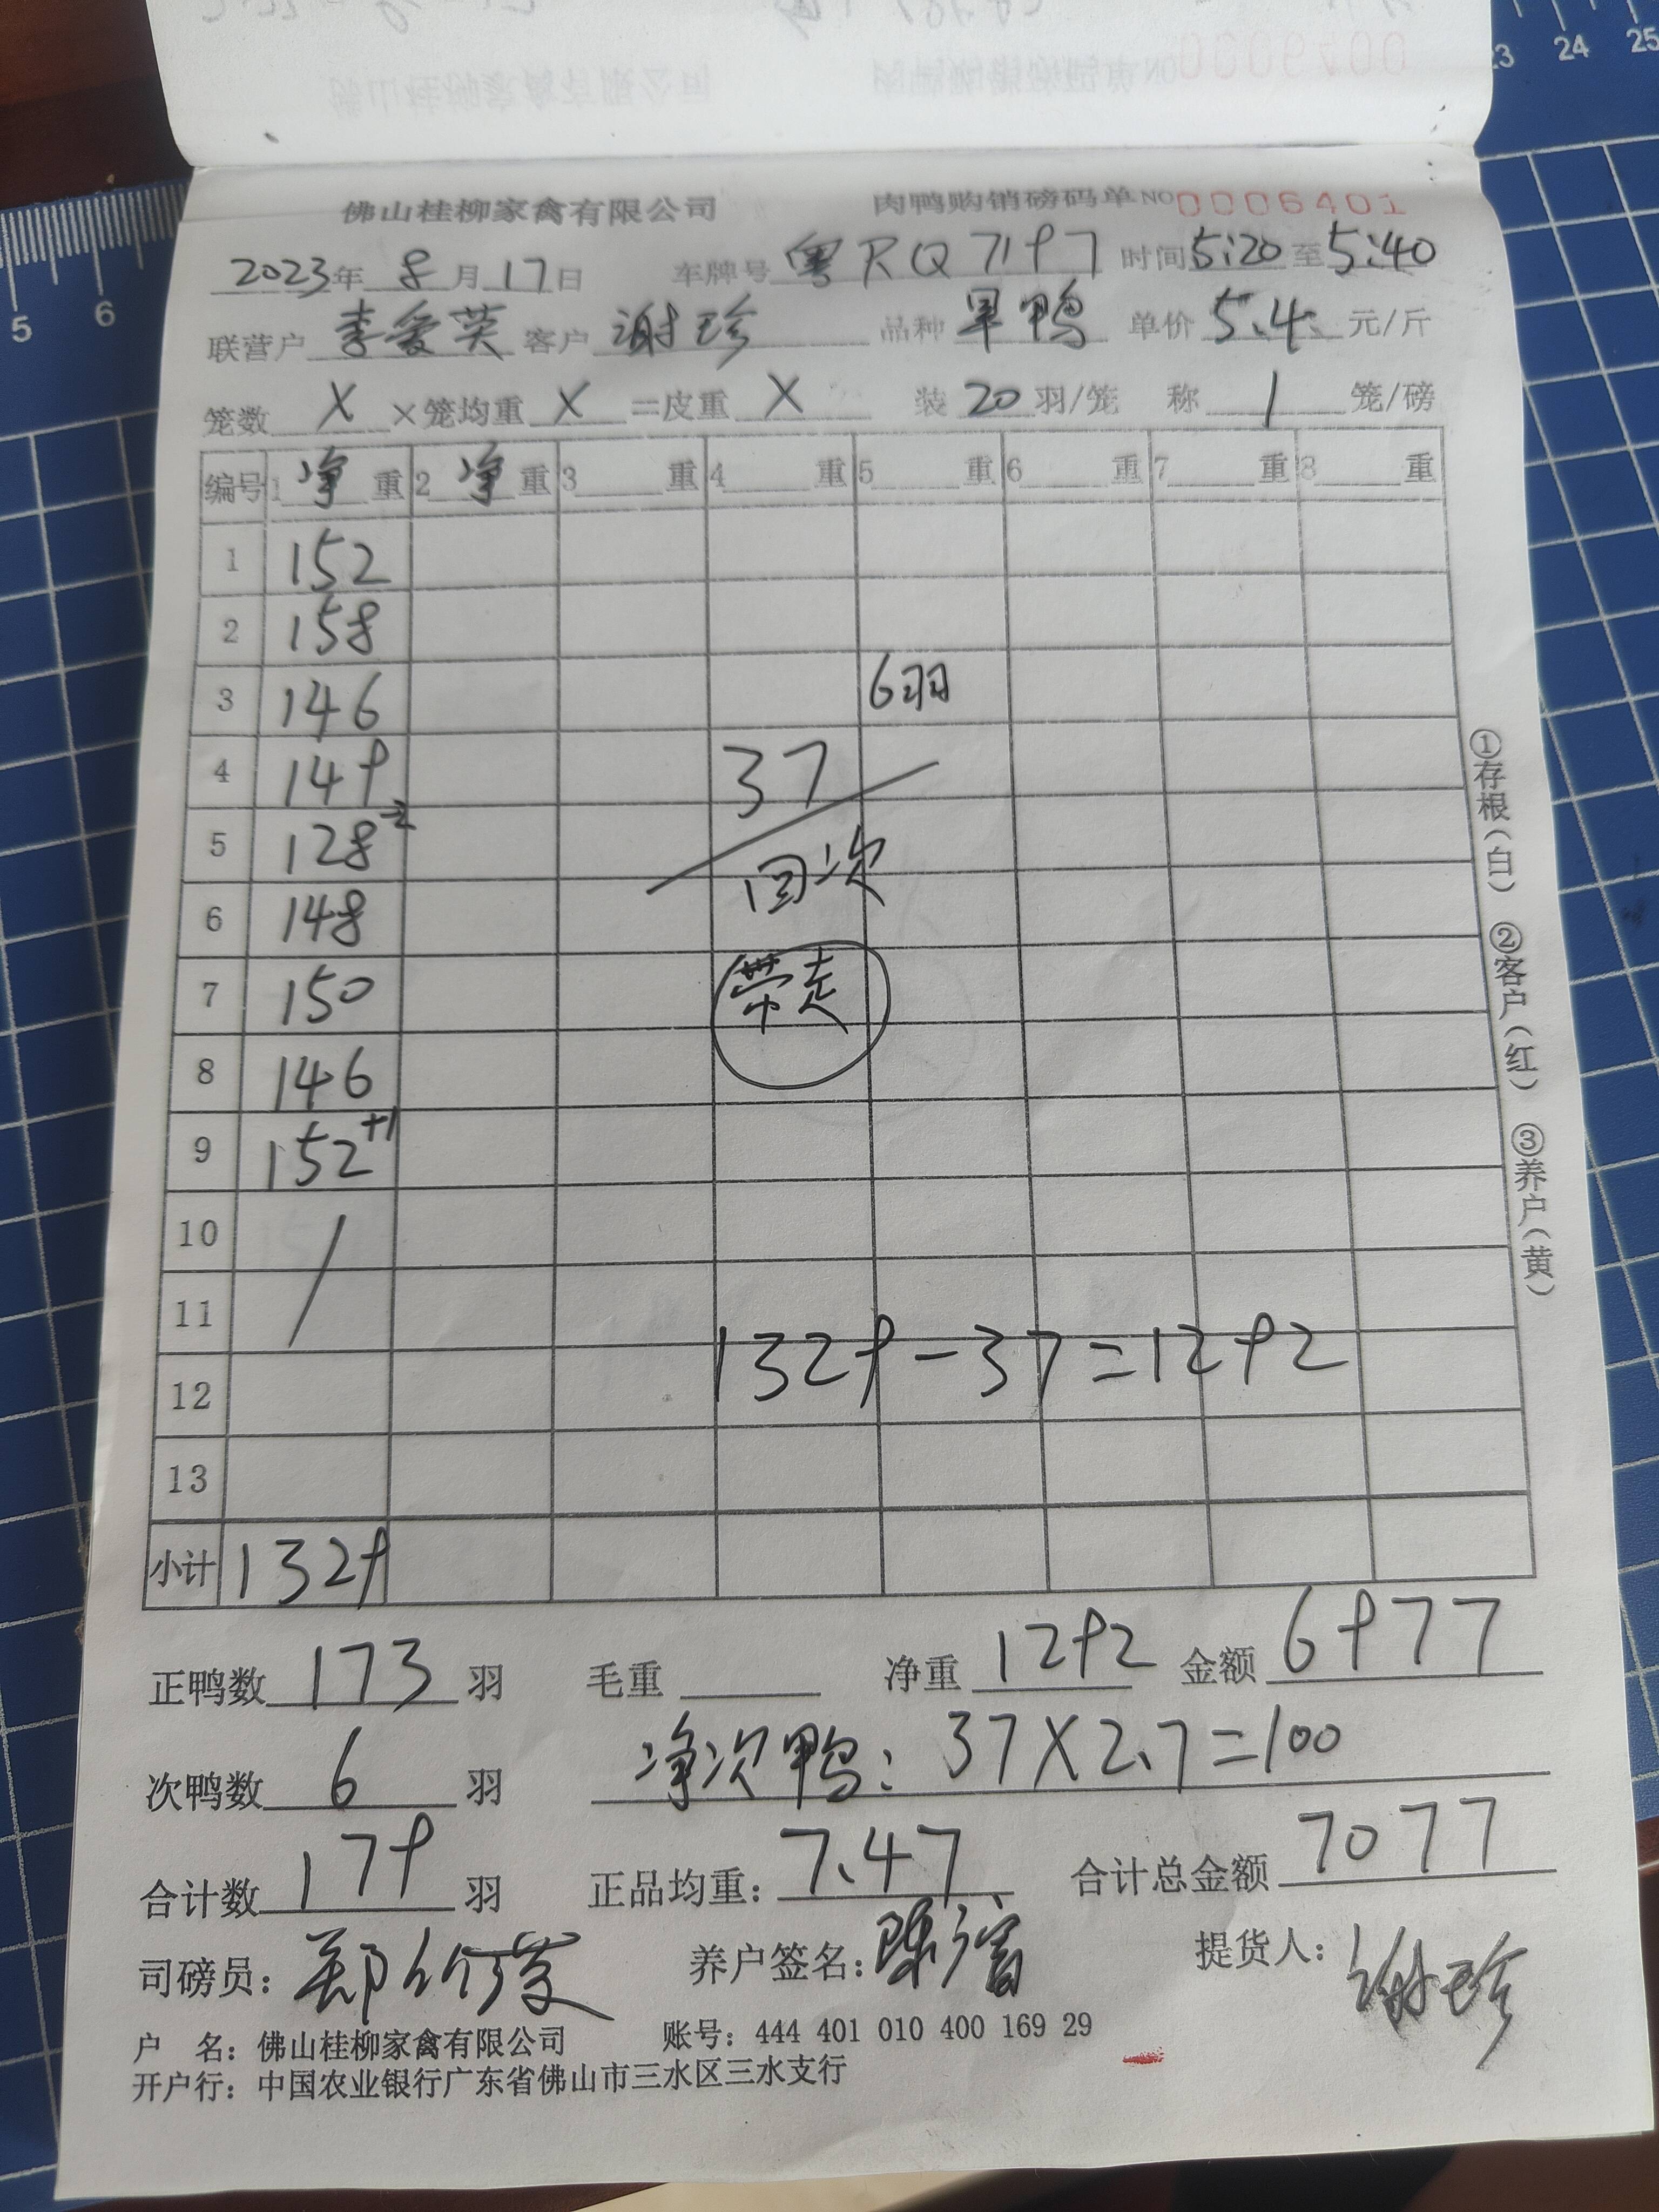 佛山桂柳家禽有限公司 肉鸭购销磅码单 NO 0006401
2023年 8月17日 车牌号 粤RQ7197 时间 5:20 至 5:40
联营户 李爱英 客户 谢珍 品种 旱鸭 单价 5.4 元/斤
笼数 X ×笼均重 X =皮重 X 装 20 羽/笼 称 1 笼/磅
编号 1 净 重 2 净 重 3 重 4 重 5 重 6 重 7 重 8 重
1 152
2 158
3 146 6羽
4 149 37
5 128 -2
回次
6 148
7 150 带走
8 146
9 152 +1
10
11
1329-37=1292
12
13
小计 1329
①存根(白) ②客户(红) ③养户(黄)
正鸭数 173 羽 毛重 净重 1292 金额 6977
次鸭数 6 羽 净次鸭: 37X2.7=100
合计数 179 羽 正品均重: 7.47 合计总金额 7077
司磅员: 郑 养户签名: 陈 提货人: 谢珍
户 名: 佛山桂柳家禽有限公司 账号: 444 401 010 400 169 29
开户行: 中国农业银行广东省佛山市三水区三水支行